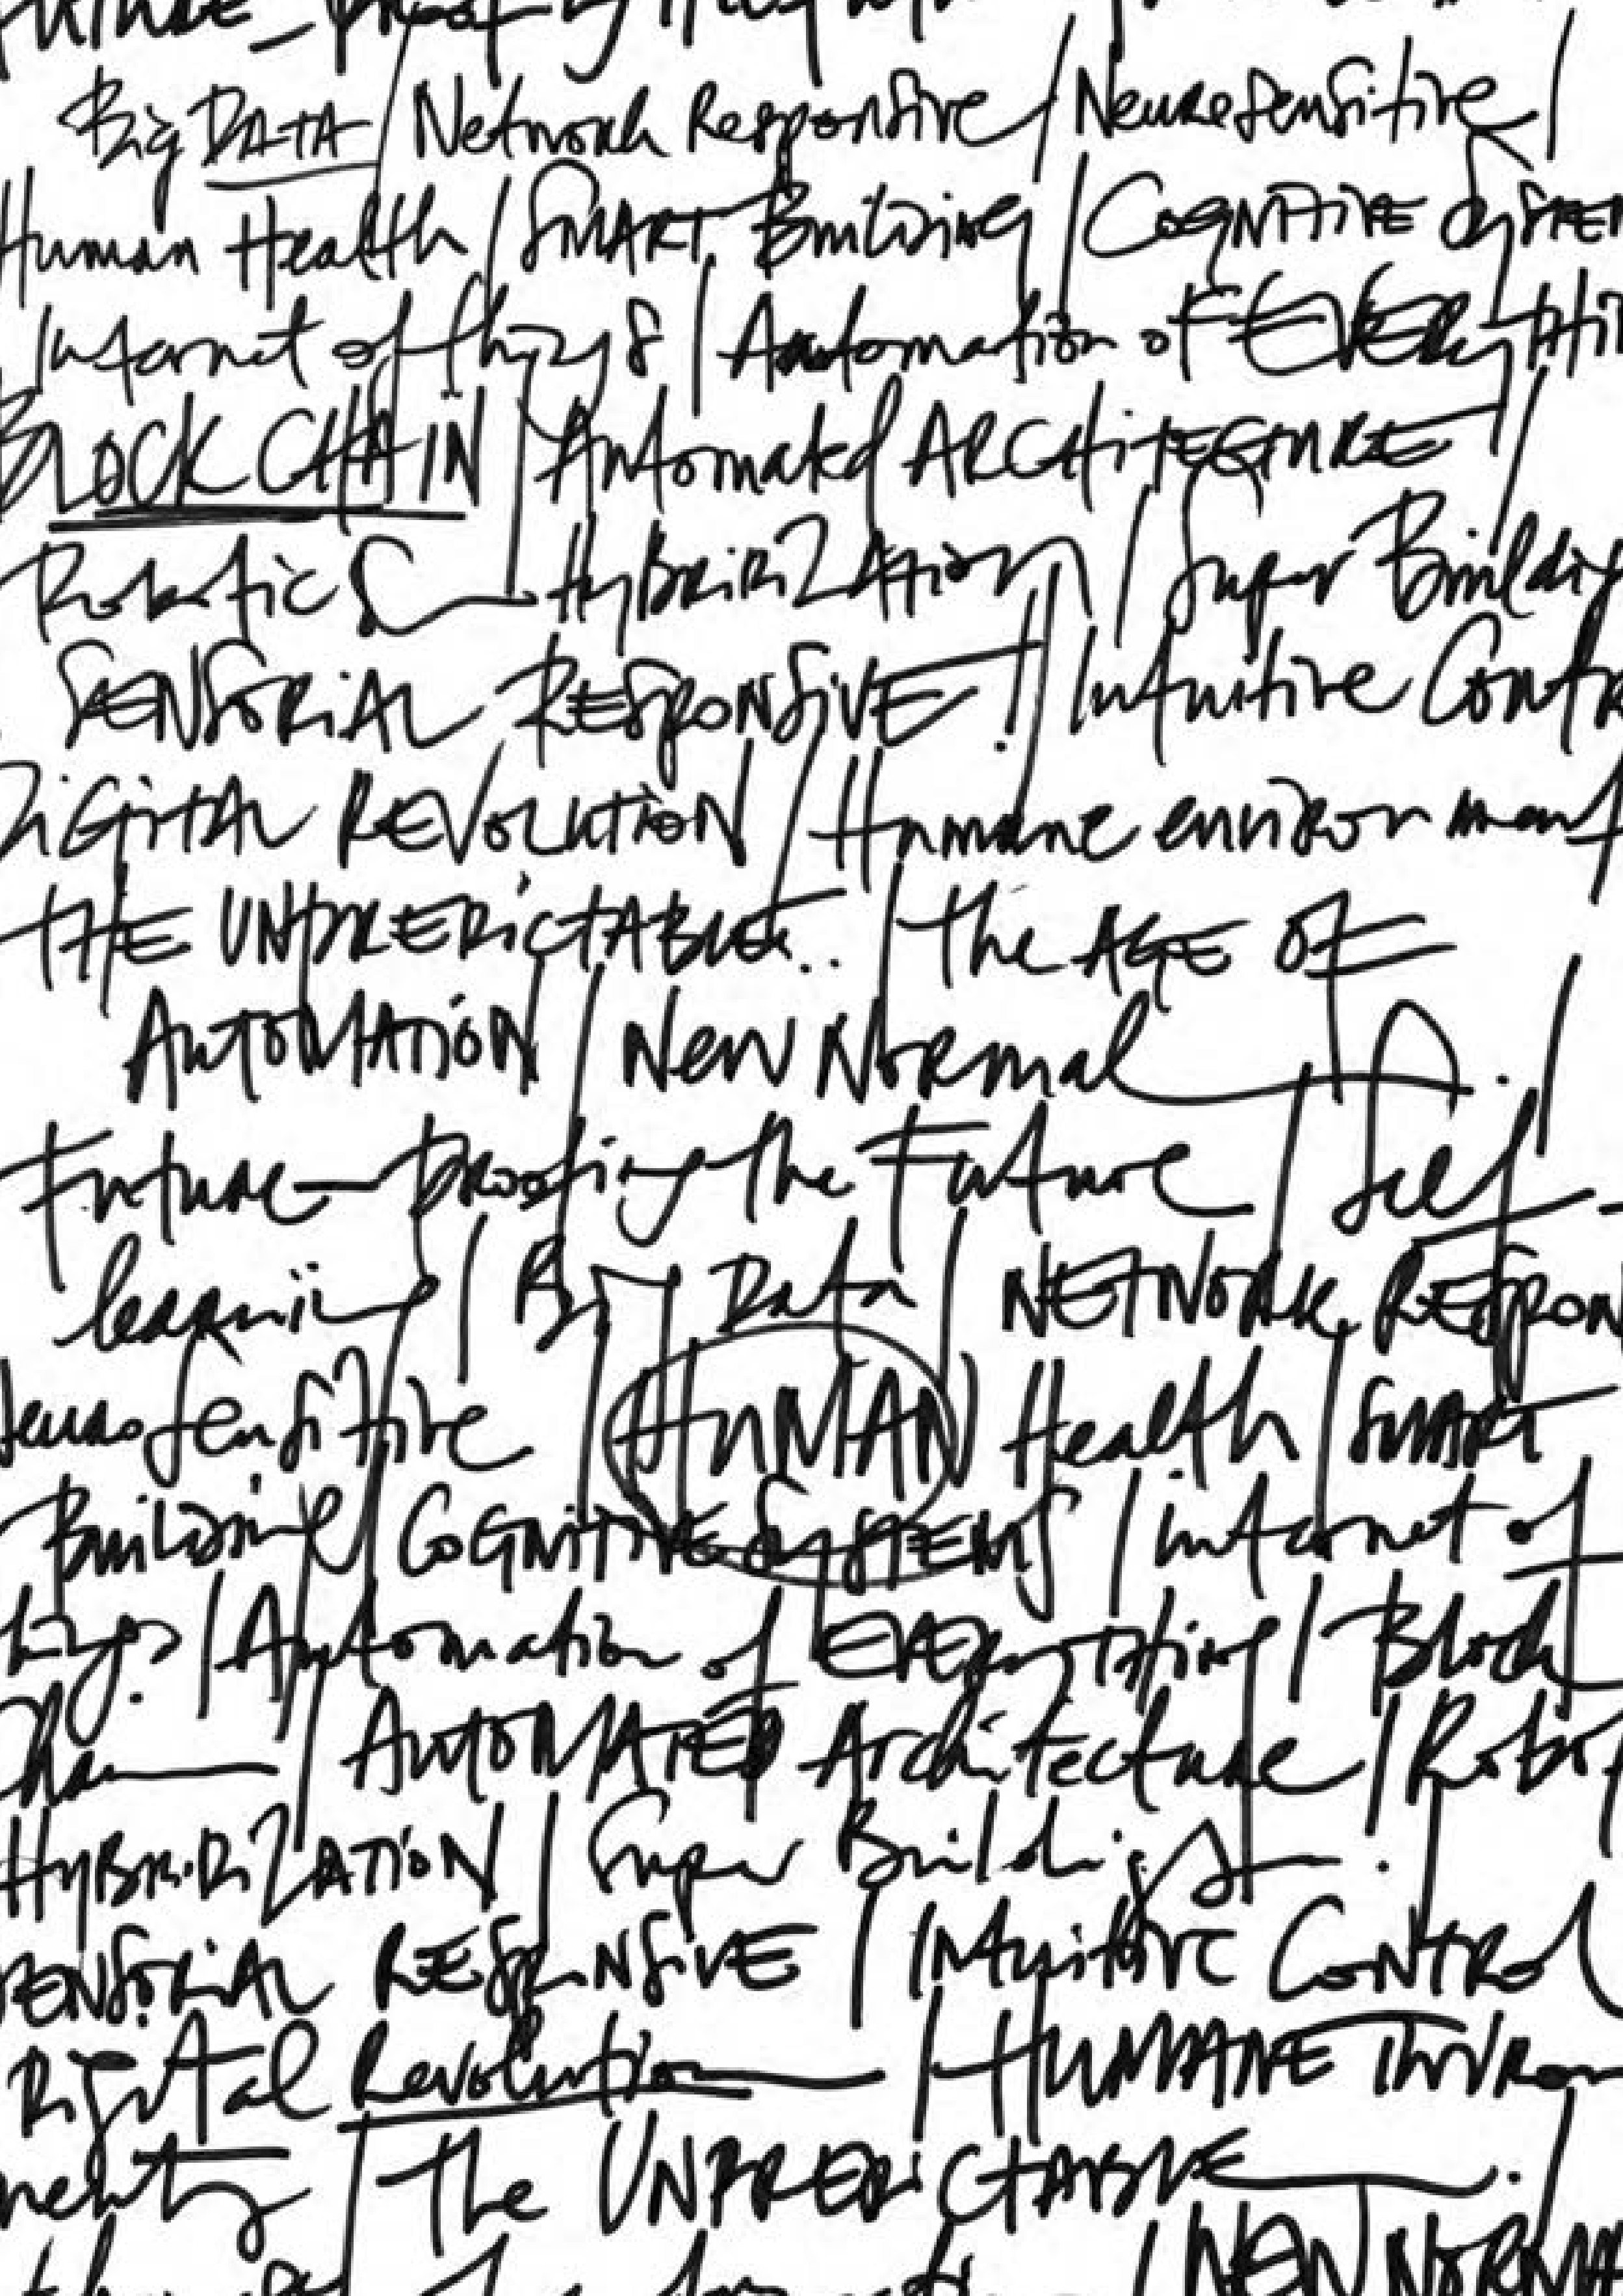 Big DATA / Network Responsive / Neurosensitive /
Human Health / SMART Building / COGNITIVE
Internet of things | Automation of EVERYthi
BLOCK CHAIN | Automated ARCHITECTURE /
Robotics HyBRiDiZATion / Super Building
SENSORiAL RESPONSiVE! / Intuitive Contr
DiGitAL REVOLUTION / Humane environment
THE UNPREDiCTABLE.. / the AGE OF
AUTOMATiON / New Normal . /
Future-proofing the Future / Self-
learning / Big Data / NETWORK RESPON
Neurosensitive / HUMAN Health / SMART
Building / COGNITIVE SYSTEMS / internet of
/ Automation of EVERYTHing / Block
AUTOMATED Architecture / Robot
HyBRiDiZATiON / Super Buildings. /
SENSORiAL RESPONSiVE / INtuitive CONTROL
Digital Revolution / HUMANE ENViron
ment / the UNPREDiCTABLE. /
NEW NORMA